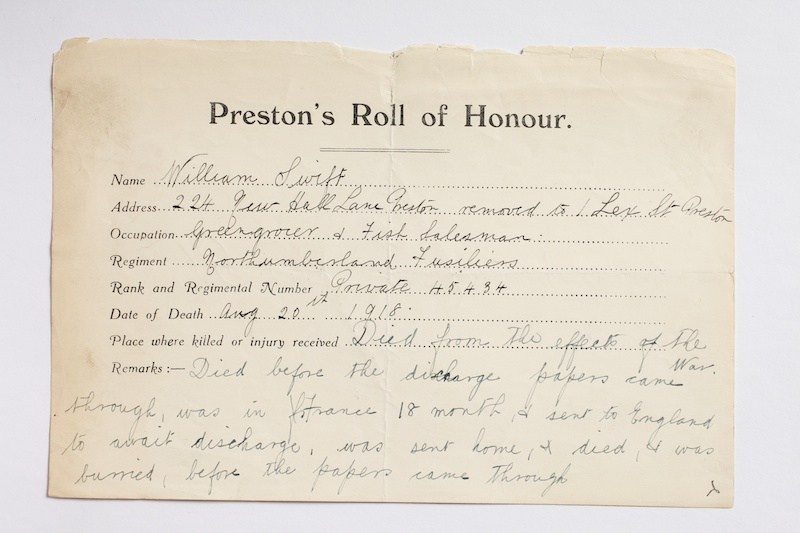 Preston's Roll of Honour.
Name William Swift
Address 224 New Hall Lane Preston removed to 1 Lex St Preston
Occupation Greengrocer & Fish Salesman.
Regiment Northumberland Fusiliers
Rank and Regimental Number Private 45434
Date of Death Aug 20th 1918.
Place where killed or injury received Died from the effects of the War.
Remarks:— Died before the discharge papers came
through, was in France 18 month, & sent to England
to await discharge, was sent home, & died, & was
burried, before the papers came through